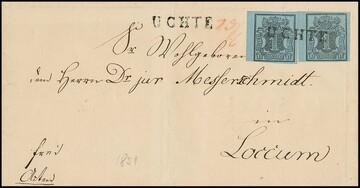 UCHTE
UCHTE
1 1
Sr Wohlgeboren
dem Herrn Dr jur Messerschmidt
in
Loccum
frei